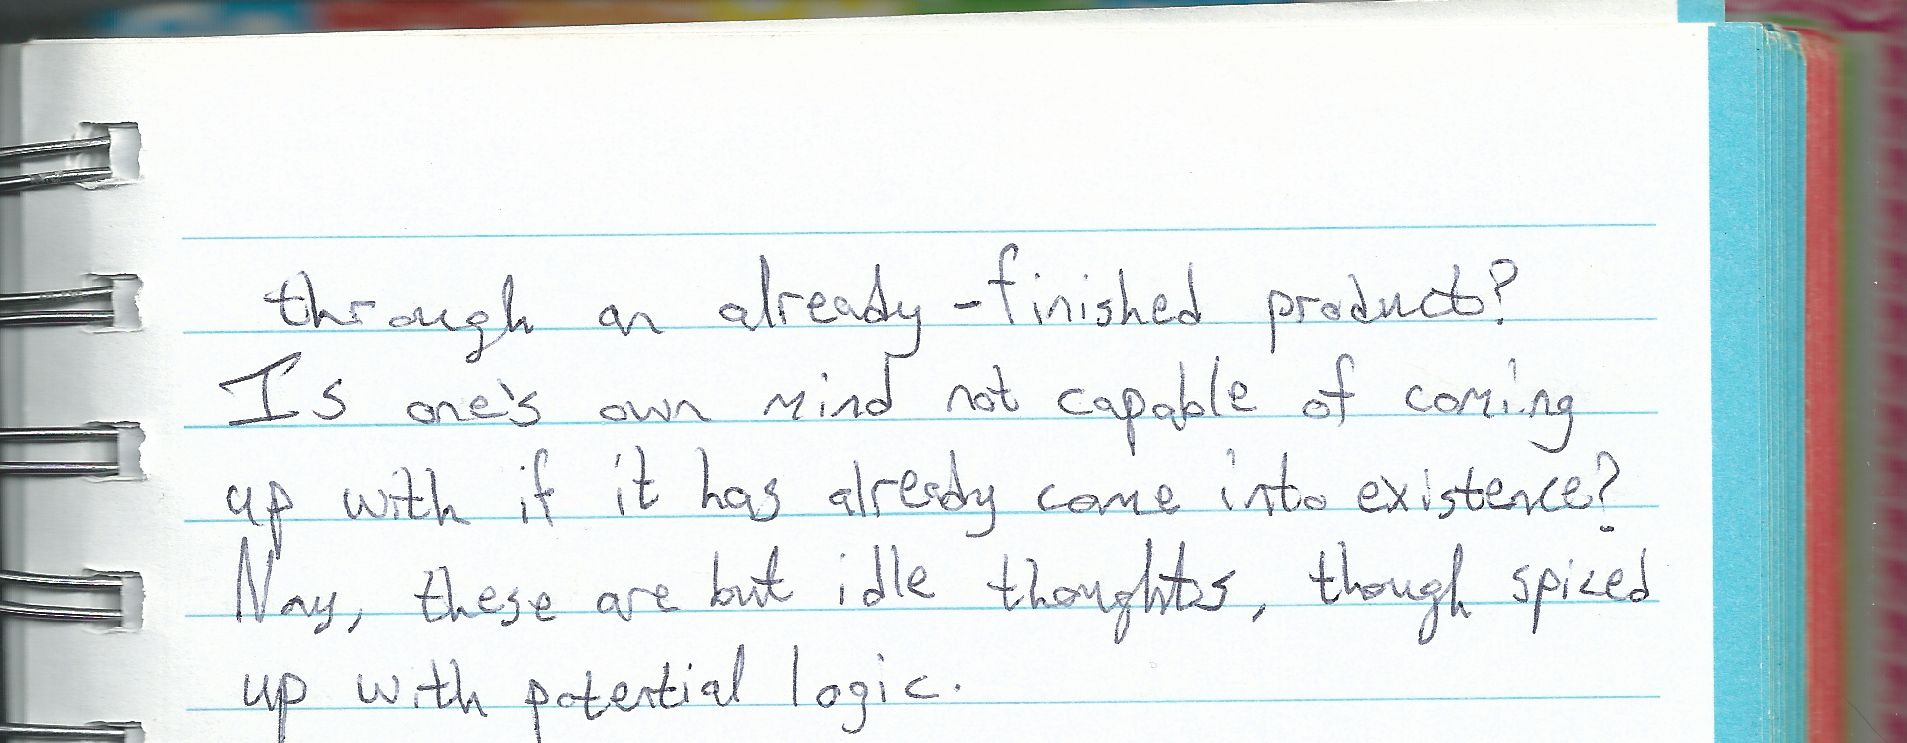 through an already-finished product?
Is one's own mind not capable of coming
up with if it has already come into existence?
Nay, these are but idle thoughts, though spiced
up with potential logic.